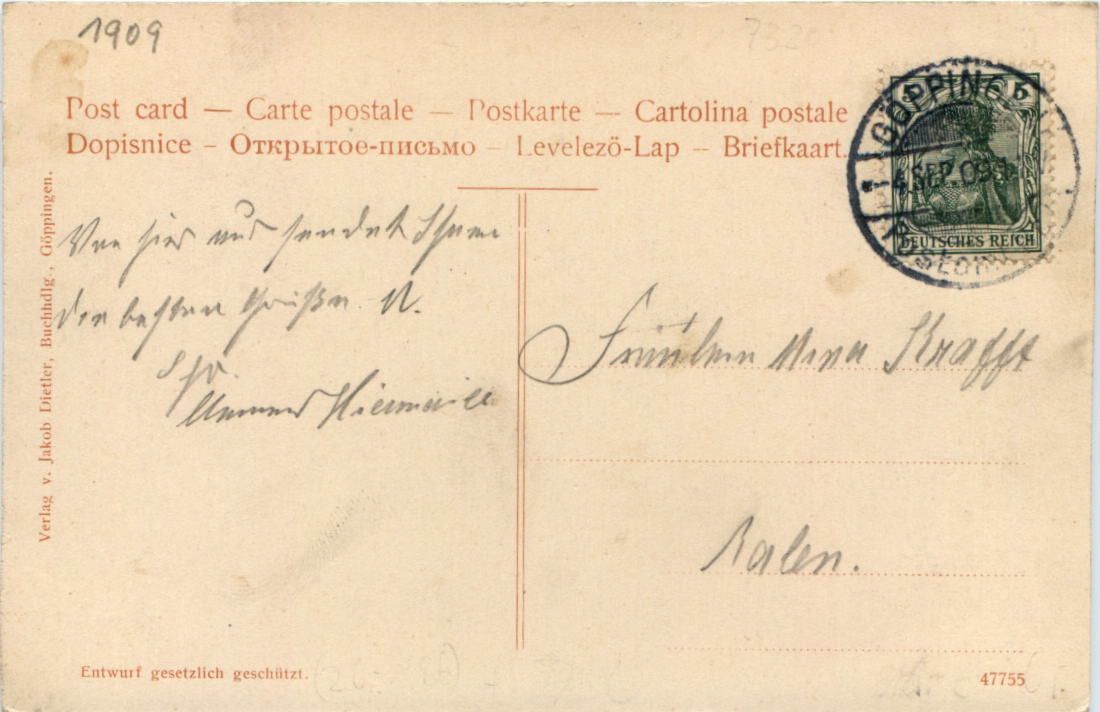 1909
Post card — Carte postale — Postkarte — Cartolina postale
Dopisnice – Открытое-письмо – Levelező-Lap – Briefkaart.
GÖPPINGEN
4.SEP.09
5
DEUTSCHES REICH
Von hier aus sendet Ihnen
die besten Grüße
Fräulein Krafft
Aalen.
Verlag v. Jakob Dietler, Buchhdlg., Göppingen.
Entwurf gesetzlich geschützt.
47755